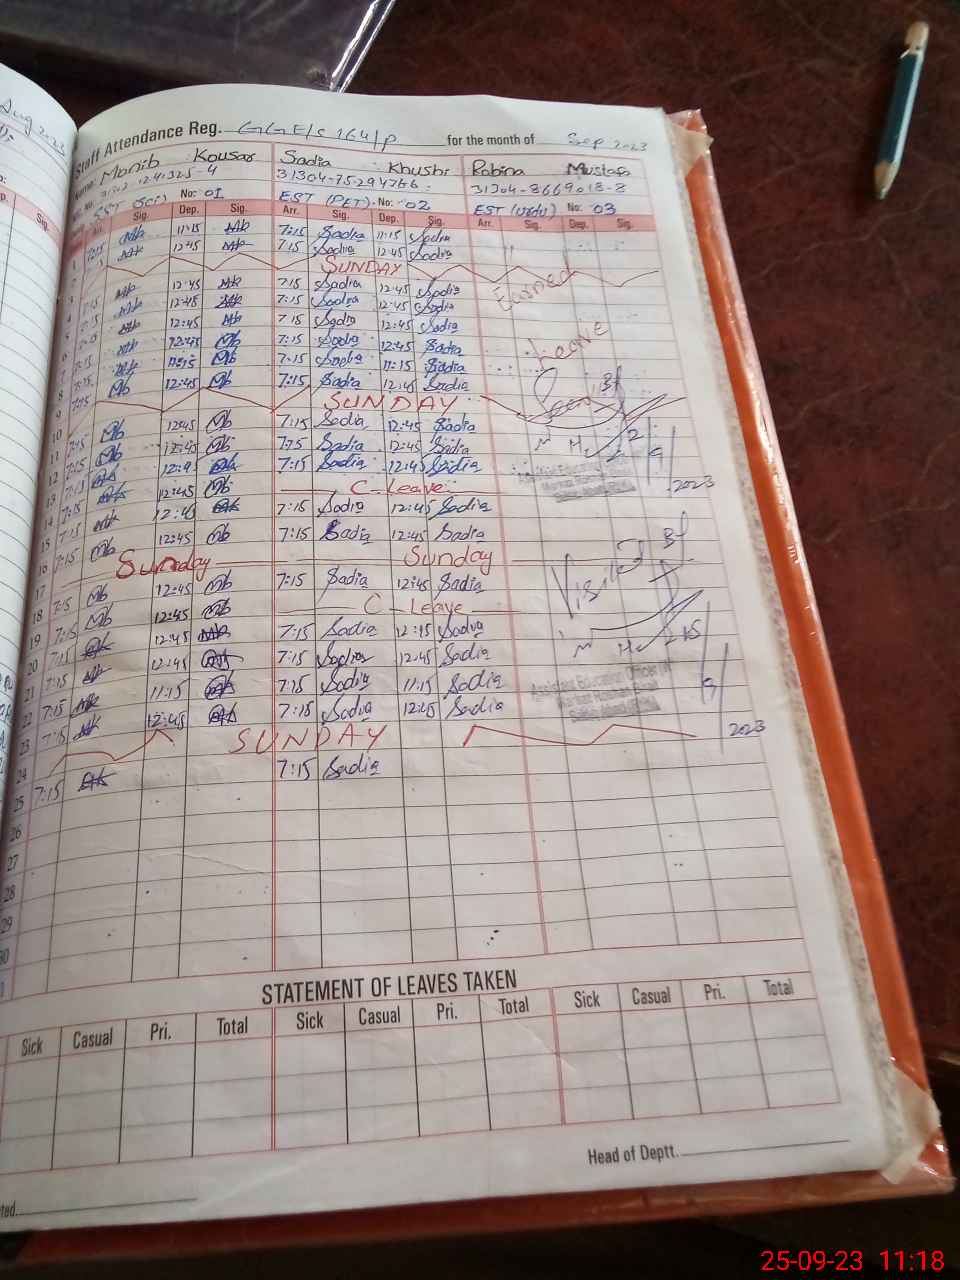 Aug 2023
Staff Attendance Reg. GGE/S 164/P for the month of Sep 2023
Name: Monib Kousar Sadia Khushi Robina Mustafa
31304-75294766 31304-8669018-8
SST (Sci) No: 01 EST (PET) No: 02 EST (Urdu) No: 03
Sig. Dep. Sig. Arr. Sig. Dep. Sig. Arr. Sig. Dep. Sig.
1 7:15 Mb 11:15 Mb 7:15 Sadia 11:15 Sadia
2 Mb 12:45 Mb 7:15 Sadia 12:45 Sadia
3 SUNDAY
Earned
4 7:15 Mb 12:45 Mb 7:15 Sadia 12:45 Sadia
5 7:15 Mb 12:45 Mb 7:15 Sadia 12:45 Sadia
6 Mb 12:45 Mb 7:15 Sadia 12:45 Sadia
Leave
7 7:15 Mb 12:45 Mb 7:15 Sadia 12:45 Sadia
8 7:15 Mb 11:15 Mb 7:15 Sadia 11:15 Sadia
9 7:15 Mb 12:45 Mb 7:15 Sadia 12:45 Sadia
10 SUNDAY
11 7:15 Mb 12:45 Mb 7:15 Sadia 12:45 Sadia
12 7:15 Mb 12:45 Mb 7:15 Sadia 12:45 Sadia
13 7:15 Mb Mb 7:15 Sadia 12:45 Sadia
2023
14 7:15 Mb 12:45 Mb C-Leave
15 7:15 Mb Mb 7:15 Sadia 12:45 Sadia
16 7:15 Mb 12:45 Mb 7:15 Sadia 12:45 Sadia
17 Sunday Sunday
Visited
18 7:15 Mb 12:45 Mb 7:15 Sadia 12:45 Sadia
19 7:15 Mb 12:45 Mb C-Leave
20 7:15 Mb 12:45 Mb 7:15 Sadia 12:45 Sadia
21 7:15 Mb 12:45 Mb 7:15 Sadia 12:45 Sadia
Assistant Education Officer
22 7:15 Mb 11:15 Mb 7:15 Sadia 11:15 Sadia
23 7:15 Mb 12:45 Mb 7:15 Sadia 12:45 Sadia
24 SUNDAY
2023
25 7:15 Mb 7:15 Sadia
26
27
28
29
30
STATEMENT OF LEAVES TAKEN
Sick Casual Pri. Total Sick Casual Pri. Total Sick Casual Pri. Total
Head of Deptt.
25-09-23 11:18